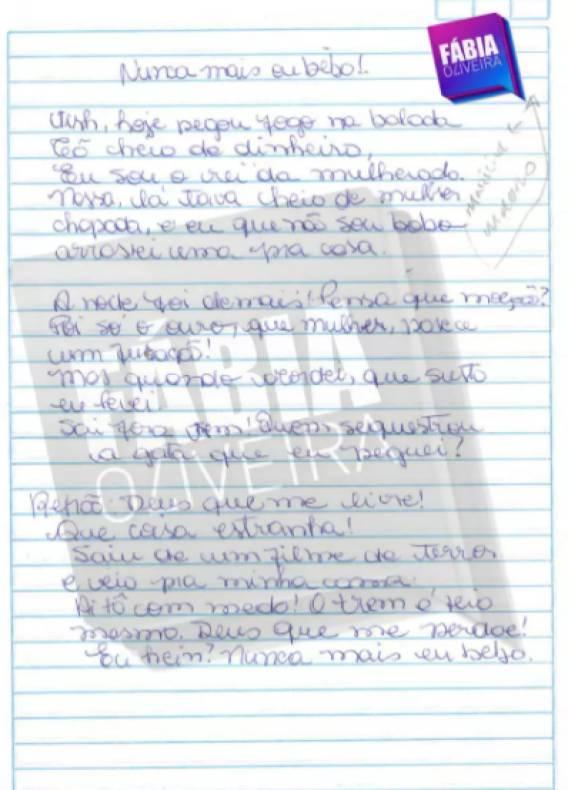 FÁBIA
OLIVEIRA
Nunca mais eu bebo!
Vish, hoje pegou fogo na balada
Tô cheio de dinheiro,
Eu sou o rei da mulherada.
Nossa, lá tava cheio de mulher
chapada, e eu que não sou bobo
arrastei uma pra casa.
A noite foi demais! Pensa que
Foi só o ouro, que mulher, parece
um
mas quando acordei, que susto
eu levei.
Sai fora trem! Quem sequestrou
a gata que eu peguei?
Refrão: Deus que me livre!
Que coisa estranha!
Saiu de um filme de terror
e veio pra minha cama.
Ai tô com medo! O trem é feio
mesmo. Deus que me perdoe!
Eu hein? Nunca mais eu bebo.
FÁBIA
OLIVEIRA